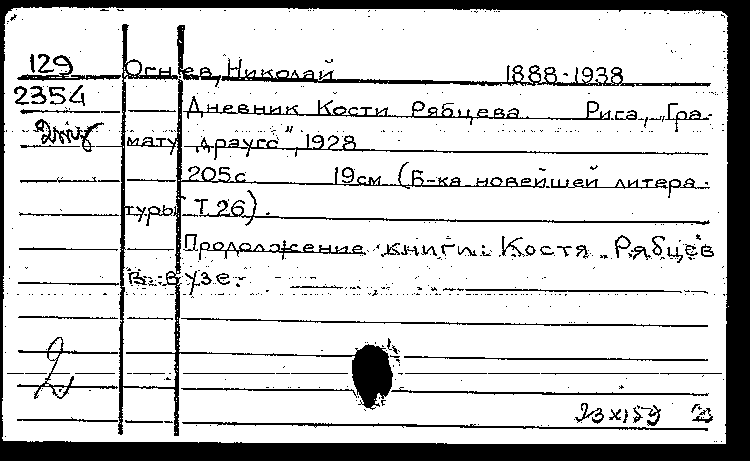 129 Огнев, Николай 1888-1938
2354 Дневник Кости Рябцева. Рига, „Гра-
мату драугс", 1928
205с 19см (Б-ка новейшей литера-
туры Т. 26).
Продолжение книги: Костя Рябцев
в вузе.
2
23 XI 59